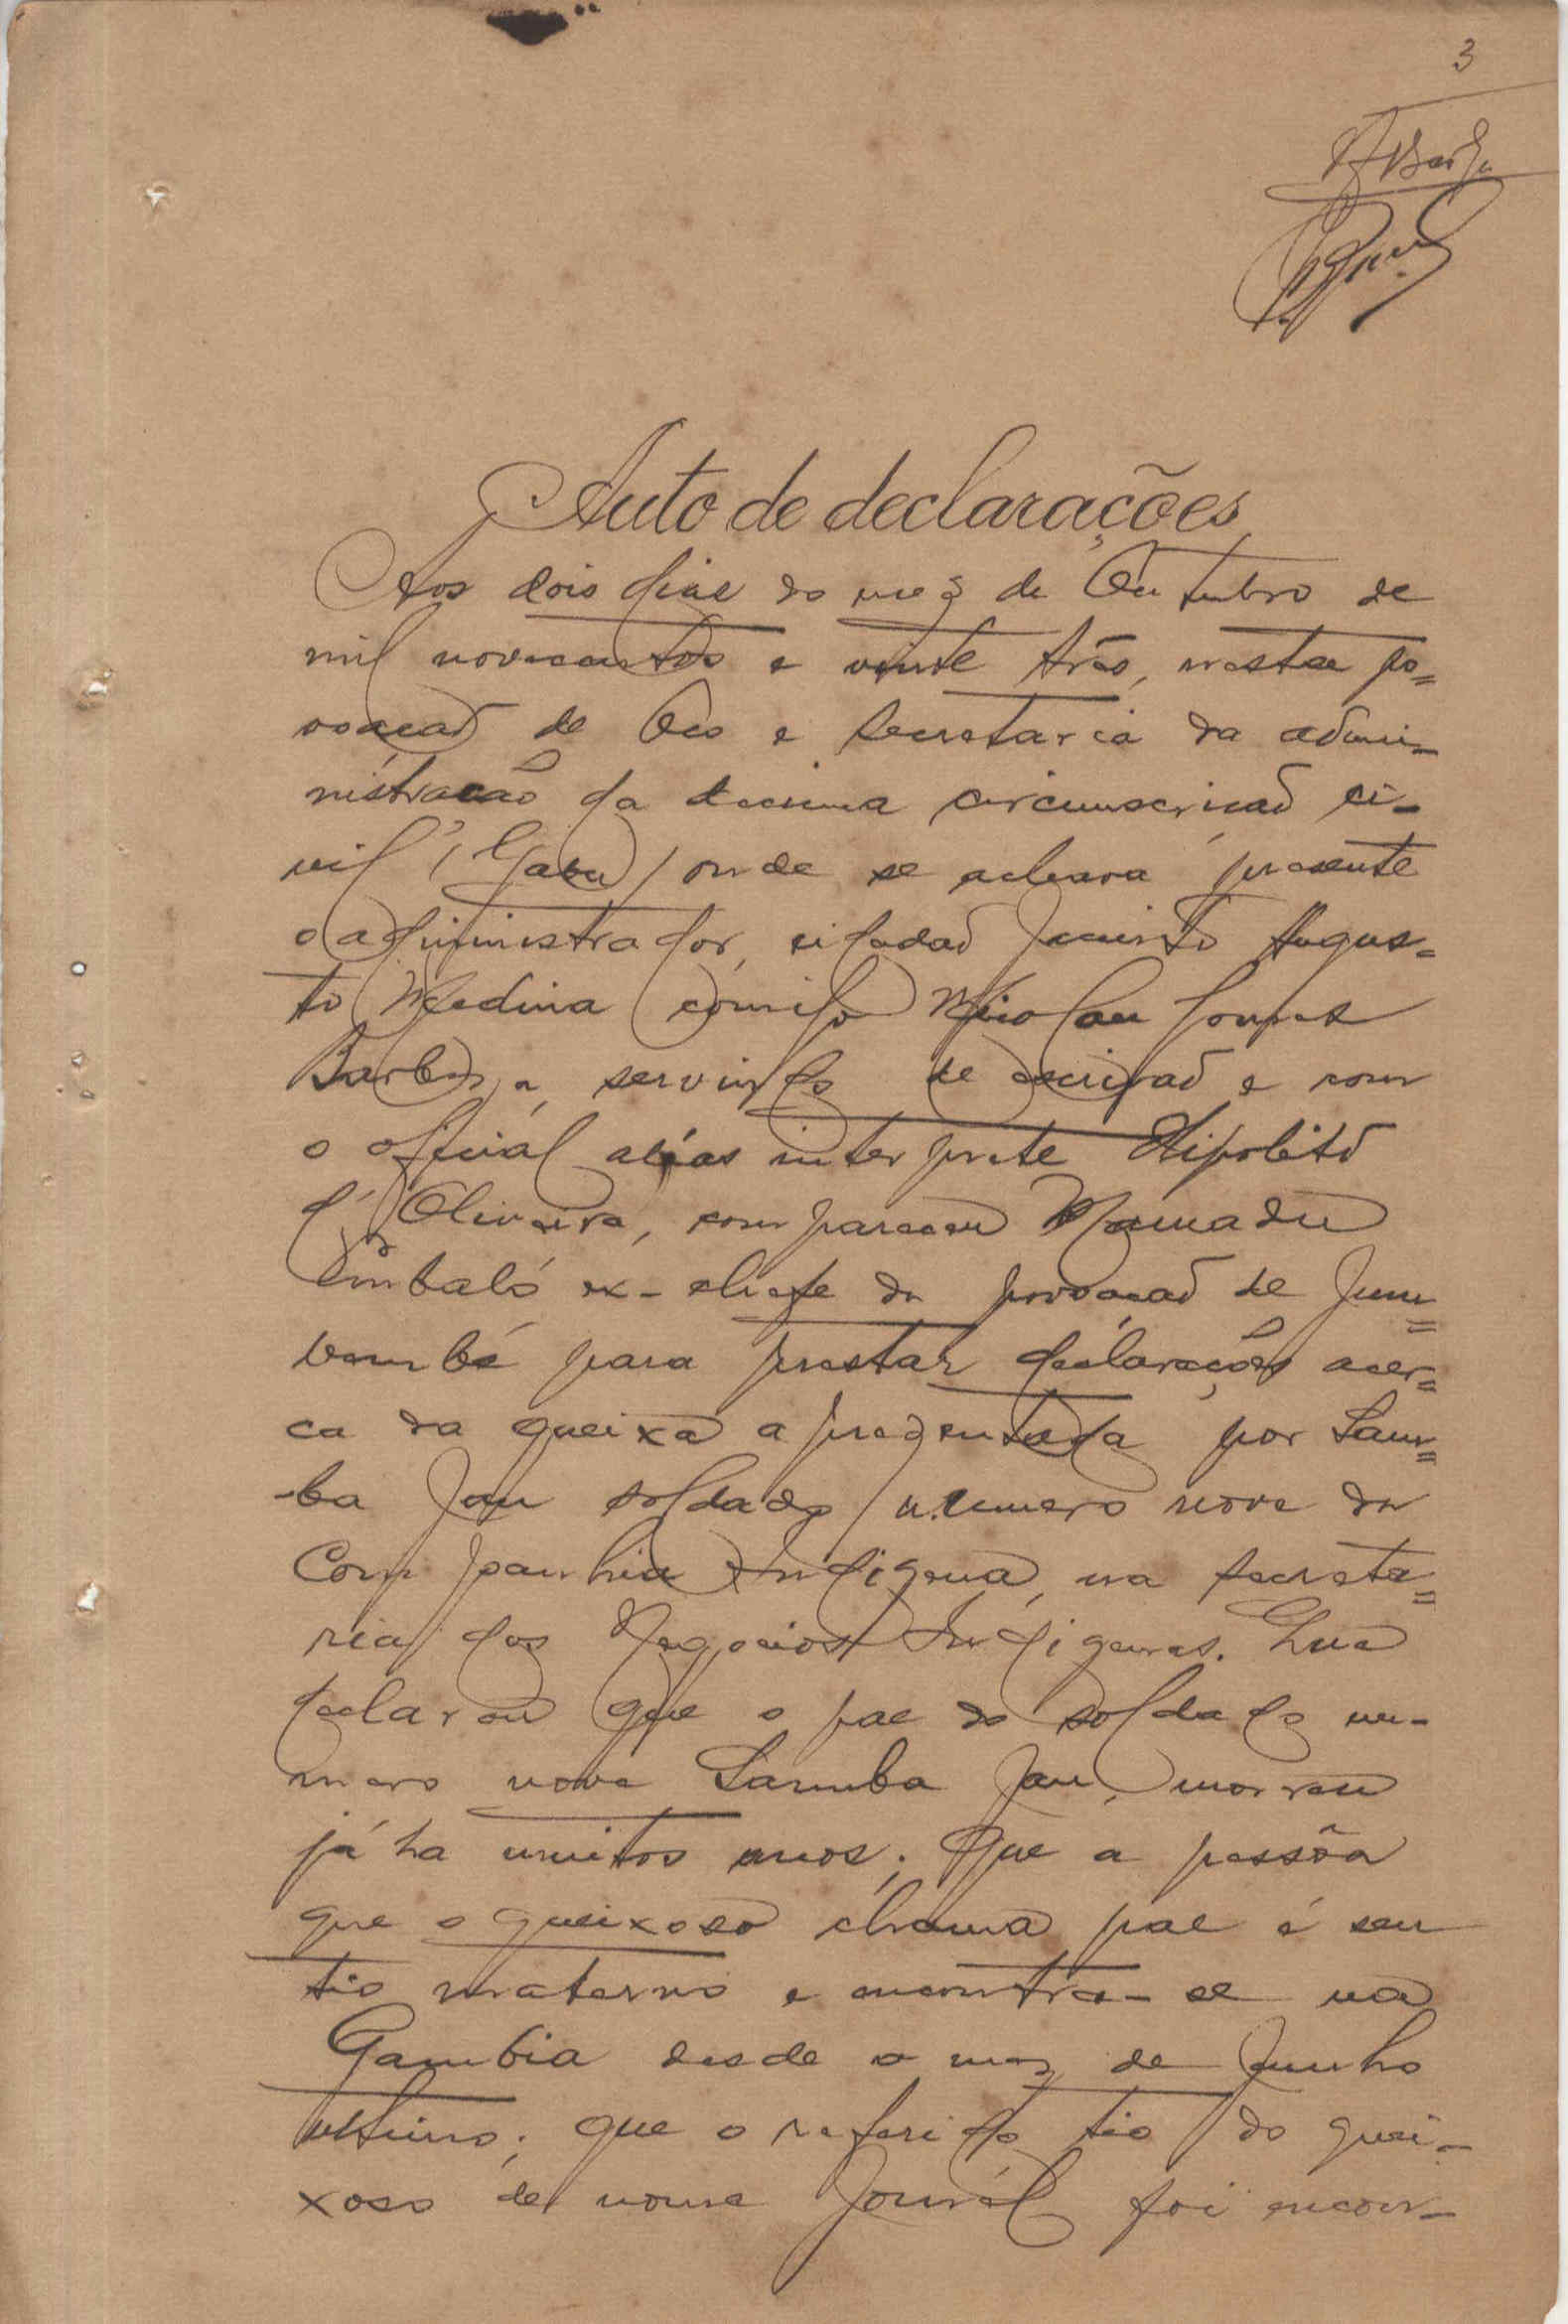 3
Auto de declarações
Aos dois dias do mez de Outubro de
mil novecentos e vinte três, nesta po=
voação de Oco e secretaria da admi-
nistração da decima circunscrição ci-
vil (Gabu) onde se achava presente
o administrador, cidadão Jacinto Augus=
to Medina comigo Nicolau Gomes
Barboza, servindo de escrivão e com
o oficial aliás interprete Hipolito
d'Oliveira, compareceu Mamadu
Embaló ex-chefe da povoação de
para prestar declarações acer=
ca da queixa aprezentada por Sam=
-ba Jau soldado numero nove da
Companhia Indigena, na secreta=
ria dos Negocios Indigenas. Que
declarou que o pae do soldado nu-
mero nove Samba Jau, morreu
já ha muitos anos; Que a pessôa
que o queixoso chama pae é seu
tio materno e encontra-se na
Gambia desde o mez de Junho
ultimo; que o referido tio do quei-
xoso de nome foi encon-